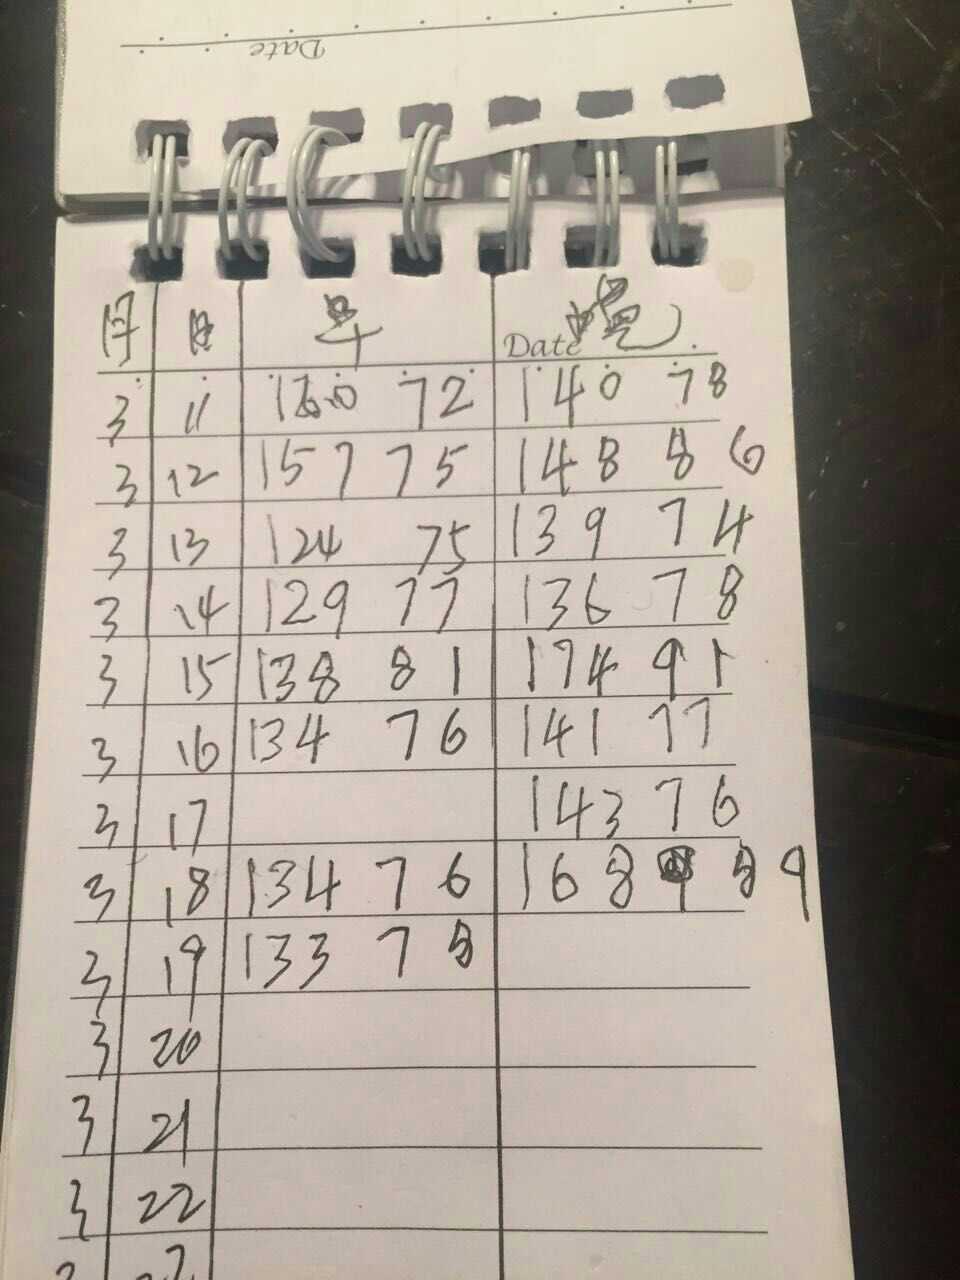 Date
月 日 早 晚
Date
3 11 160 72 140 78
3 12 157 75 148 86
3 13 124 75 139 74
3 14 129 77 136 78
3 15 138 81 174 91
3 16 134 76 141 77
3 17 143 76
3 18 134 76 168 89
3 19 133 75
3 20
3 21
3 22